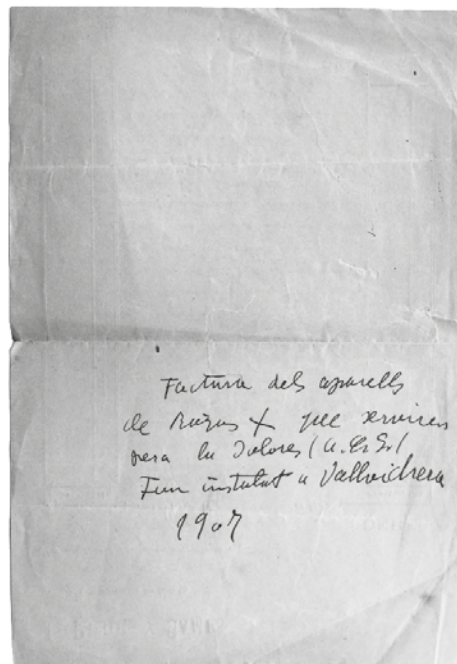 Factura dels aparells
de Rayos X que serviren
pera la Dolores (a.C.S.)
Fou instalat a Vallvidrera
1907